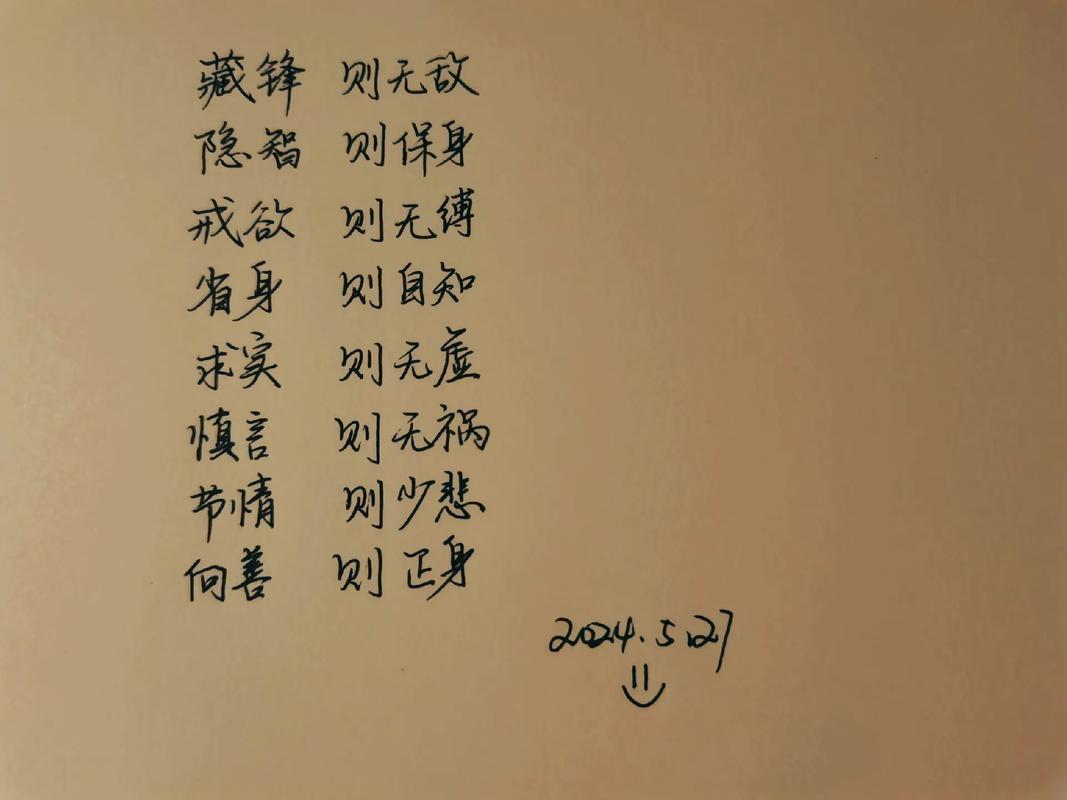 藏锋 则无敌
隐智 则保身
戒欲 则无缚
省身 则自知
求实 则无虚
慎言 则无祸
节情 则少悲
向善 则正身
2024.5.27